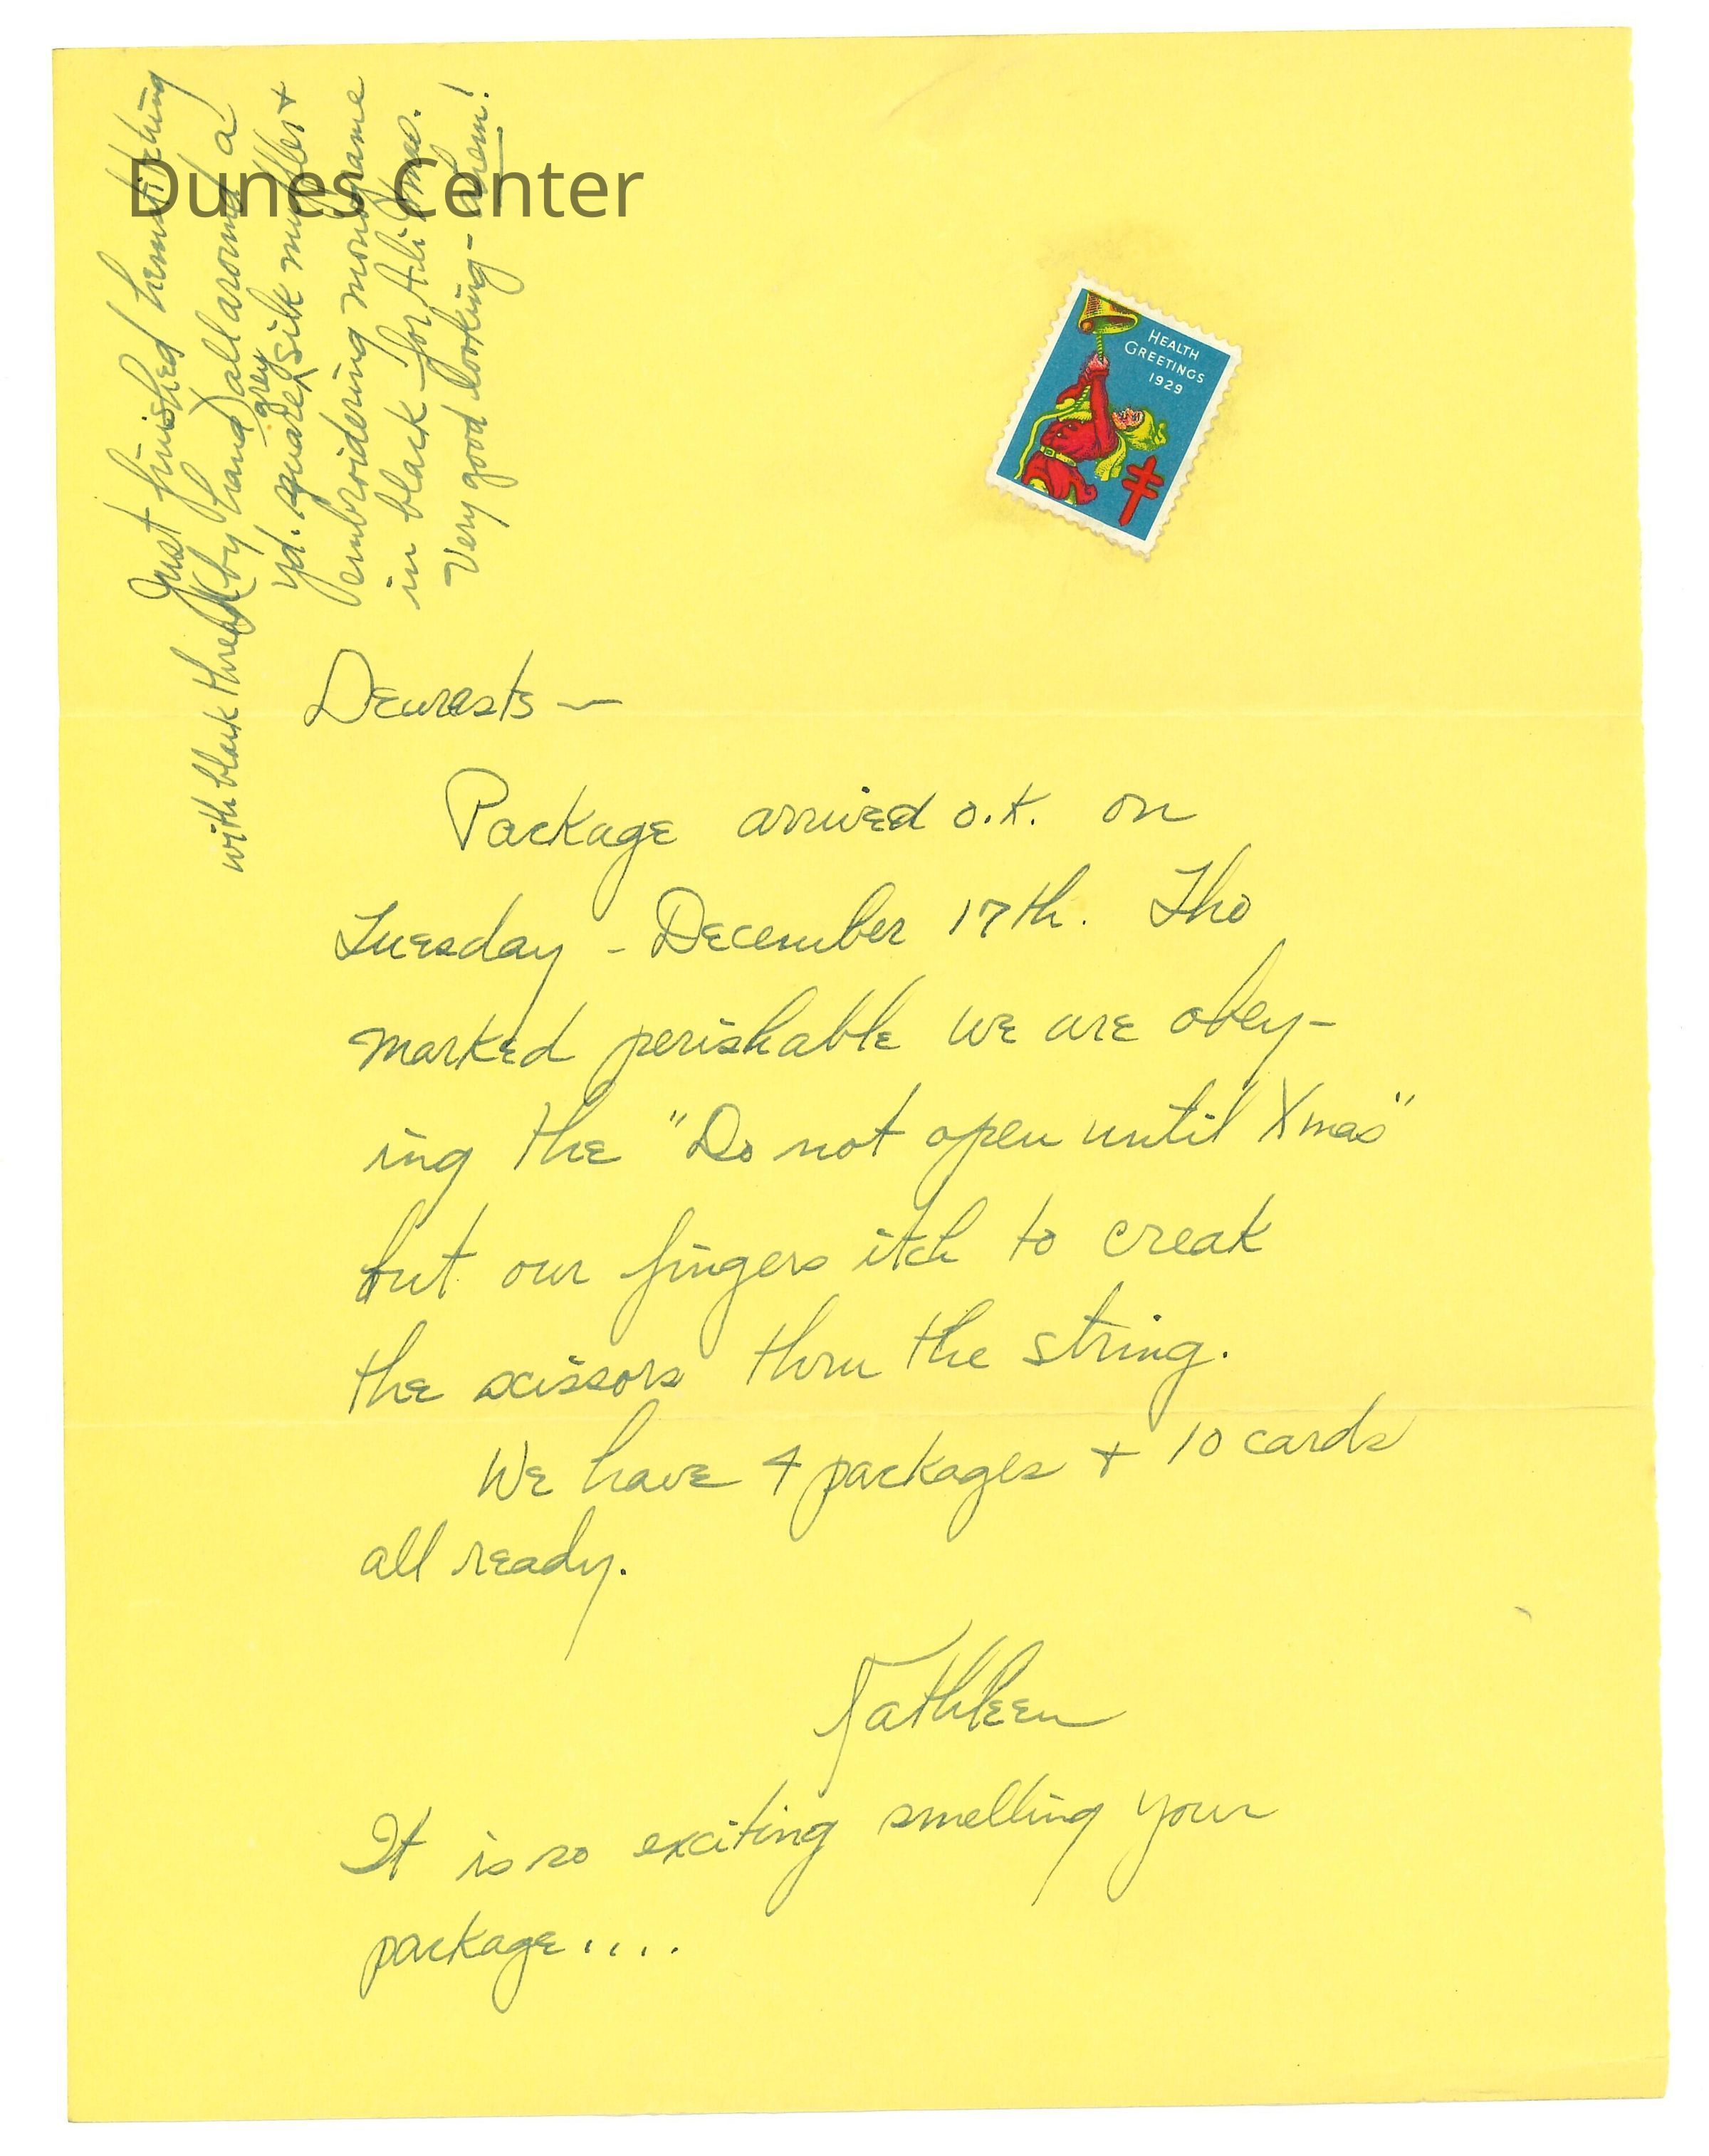 Dunes Center
Just finished hemstitching
with black thread by hand all around a
yd. square grey silk muffler +
embroidering monograme
in black for Ali Xmas.
Very good looking - ahem!
HEALTH
GREETINGS
1929
Dearests —
Package arrived o.k. on
Tuesday - December 17th. Tho
marked perishable we are obey-
ing the "Do not open until Xmas"
but our fingers itch to creak
the scissors thru the string.
We have 4 packages + 10 cards
all ready.
Kathleen
It is so exciting smelling your
package....